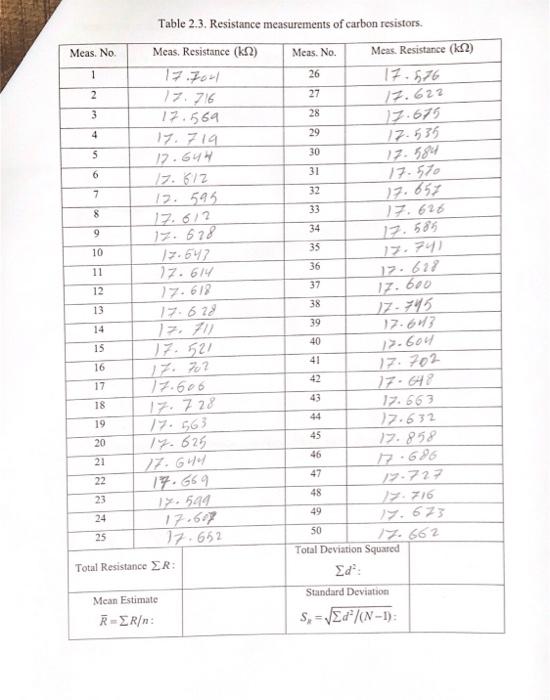 Table 2.3. Resistance measurements of carbon resistors.
Meas. No. Meas. Resistance (kΩ) Meas. No. Meas. Resistance (kΩ)
1 17.704 26 17.576
2 17.716 27 17.622
3 17.569 28 17.675
4 17.719 29 17.535
5 17.644 30 17.584
6 17.612 31 17.570
7 17.595 32 17.657
8 17.612 33 17.626
9 17.628 34 17.585
10 17.647 35 17.741
11 17.614 36 17.628
12 17.618 37 17.600
13 17.628 38 17.745
14 17.711 39 17.643
15 17.521 40 17.604
16 17.702 41 17.702
17 17.606 42 17.648
18 17.728 43 17.663
19 17.563 44 17.632
20 17.625 45 17.858
21 17.644 46 17.686
22 17.669 47 17.727
23 17.599 48 17.716
24 49 17.673
25 17.652 50 17.662
Total Resistance ∑R: Total Deviation Squared
∑d²:
Mean Estimate Standard Deviation
R̄ = ∑R/n: S_R = √∑d²/(N−1):